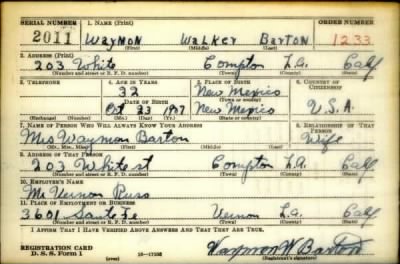 SERIAL NUMBER 1. NAME (Print) ORDER NUMBER
2011 Waymon Walker Barton 1233
(First) (Middle) (Last)
2. ADDRESS (Print)
203 White Compton L.A. Calf
(Number and street or R. F. D. number) (Town) (County) (State)
3. TELEPHONE 4. AGE IN YEARS 5. PLACE OF BIRTH 6. COUNTRY OF CITIZENSHIP
32 New Mexico
DATE OF BIRTH (Town or county)
Oct 23 1907 New Mexico U.S.A.
(Exchange) (Number) (Mo.) (Day) (Yr.) (State or country)
7. NAME OF PERSON WHO WILL ALWAYS KNOW YOUR ADDRESS 8. RELATIONSHIP OF THAT PERSON
Mrs Waymon Barton Wife
(Mr., Mrs., Miss) (First) (Middle) (Last)
9. ADDRESS OF THAT PERSON
203 White st Compton L.A. Calf
(Number and street or R. F. D. number) (Town) (County) (State)
10. EMPLOYER'S NAME
Mr Vernon
11. PLACE OF EMPLOYMENT OR BUSINESS
3601 Santa Fe Vernon L.a. Calf
(Number and street or R. F. D. number) (Town) (County) (State)
I AFFIRM THAT I HAVE VERIFIED ABOVE ANSWERS AND THAT THEY ARE TRUE.
REGISTRATION CARD
D. S. S. Form 1 (over) Waymon W Barton
(Registrant's signature)